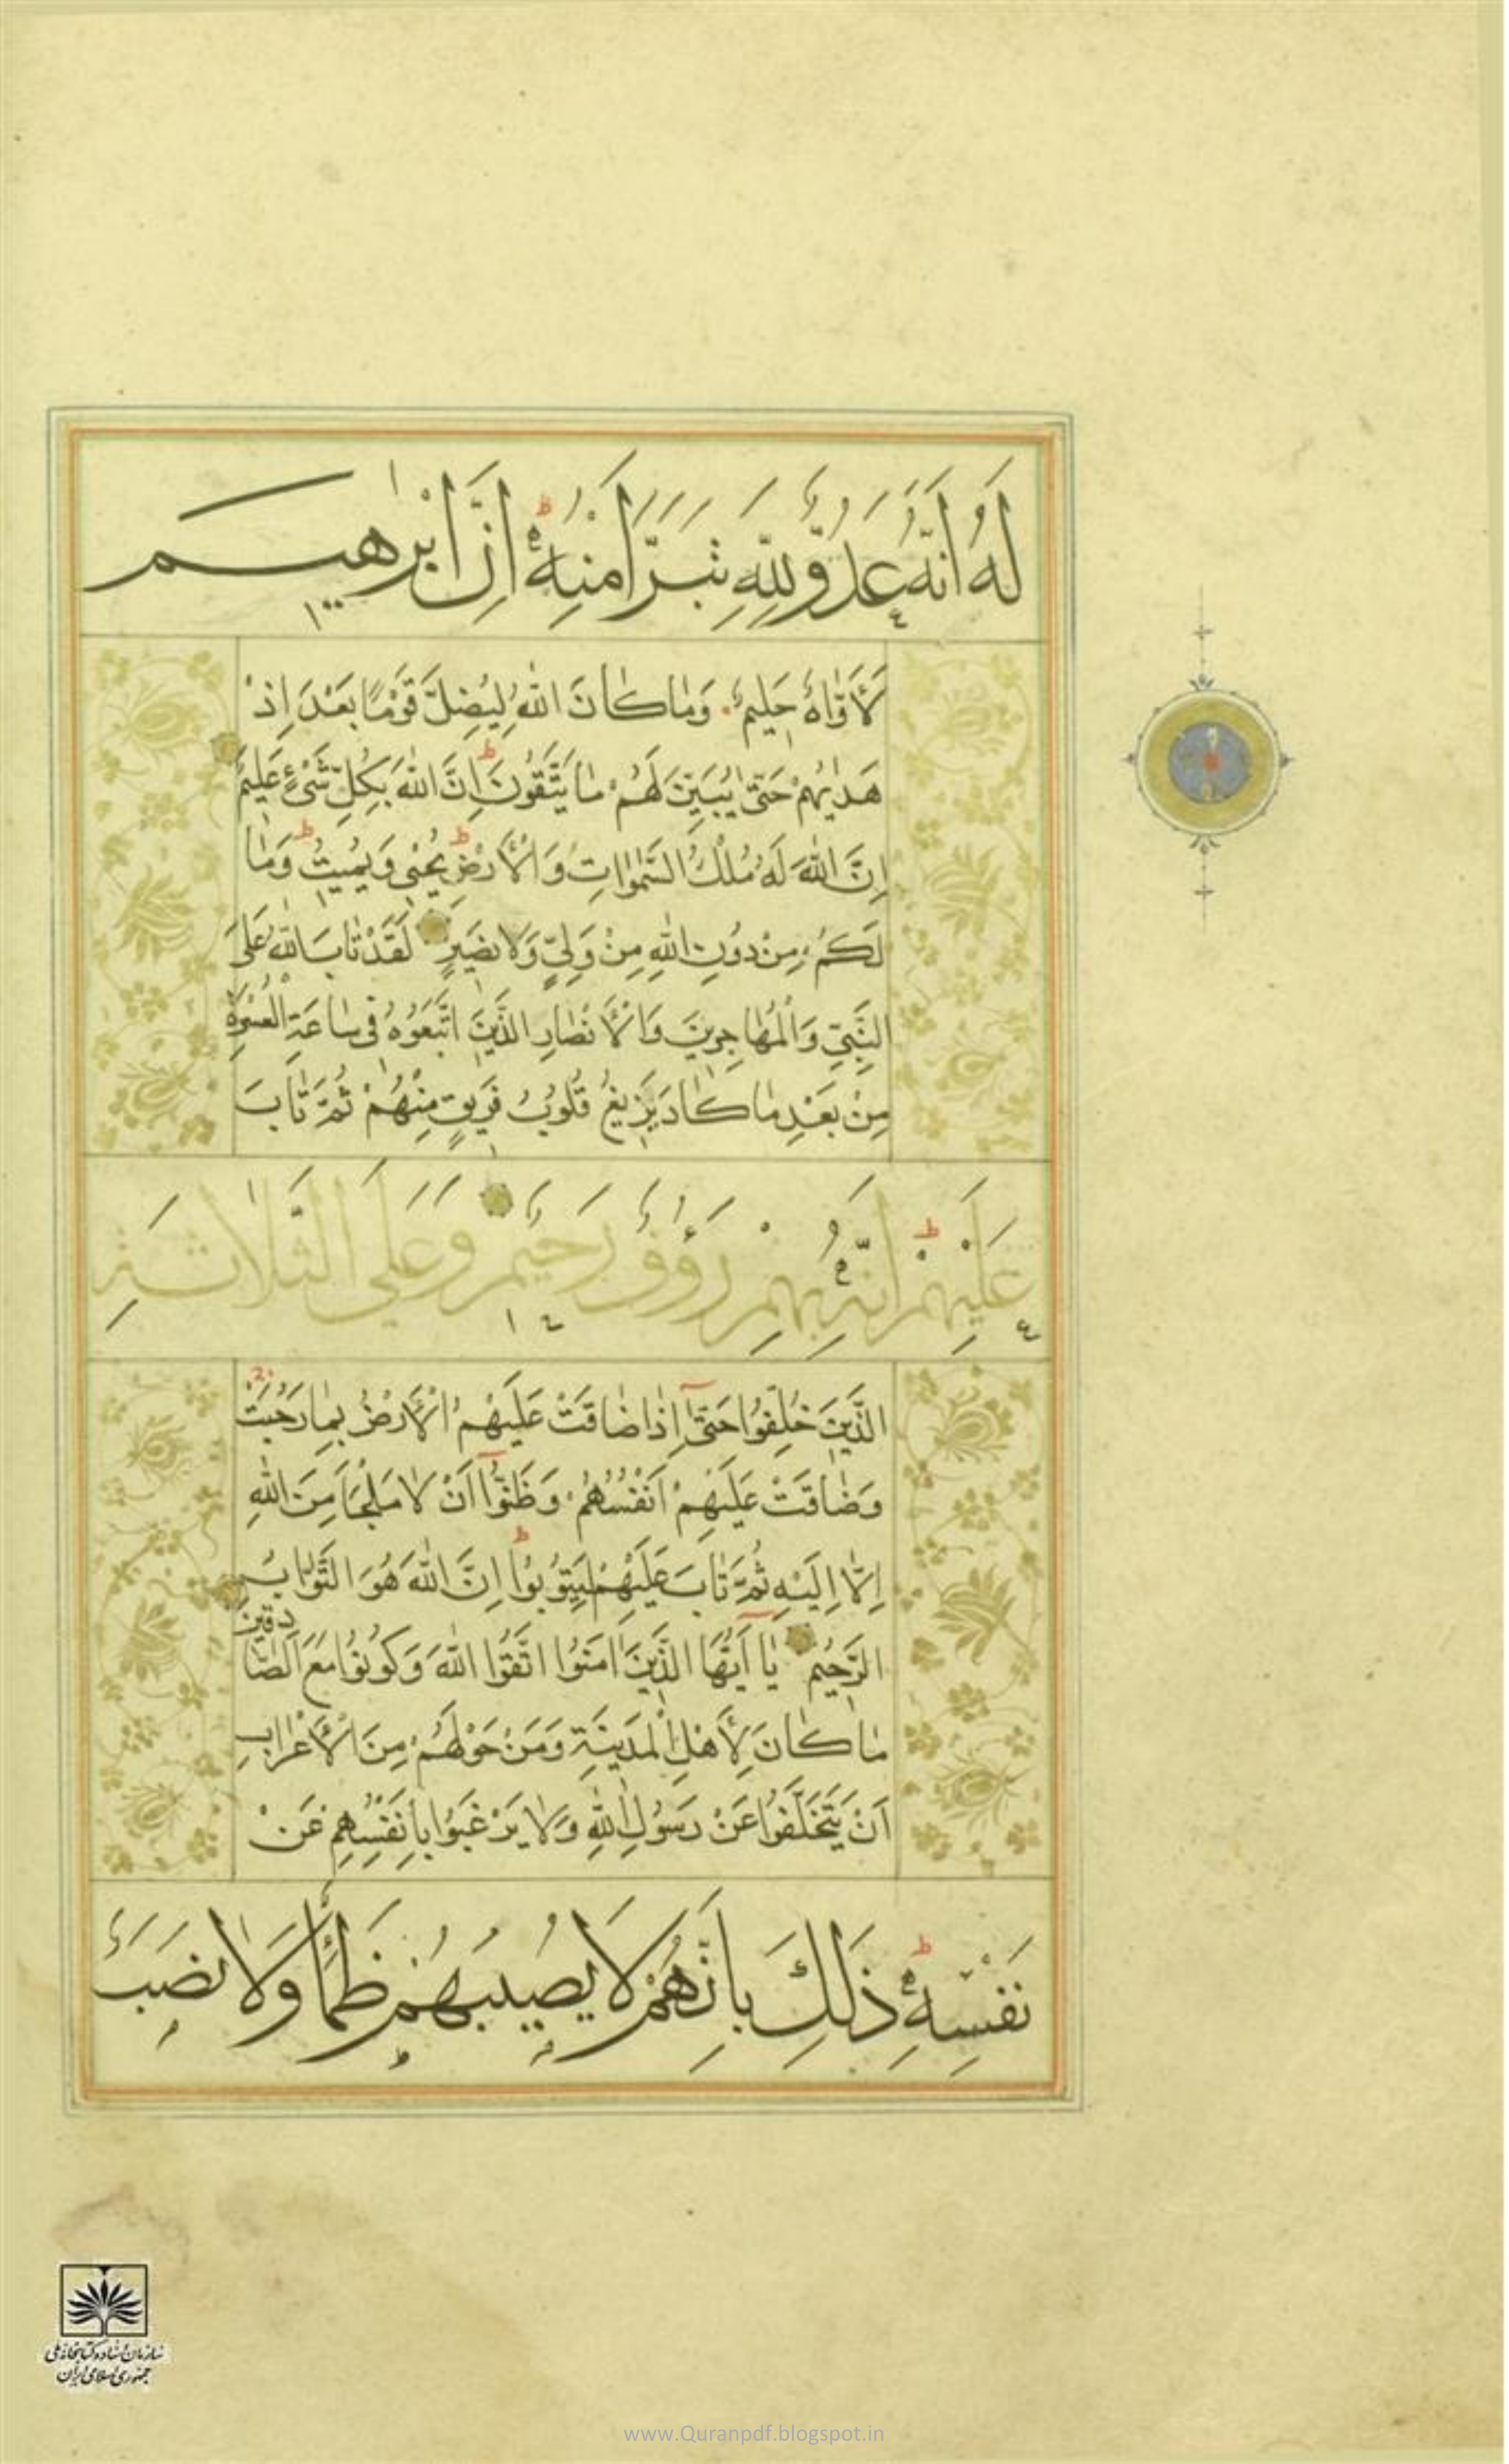 لَهُ أَنَّهُ عَدُوٌّ لِلَّهِ تَبَرَّأَ مِنْهُ ط إِنَّ إِبْرٰهِيمَ
لَأَوَّاهٌ حَلِيمٌ وَمَا كَانَ اللّٰهُ لِيُضِلَّ قَوْمًا بَعْدَ إِذْ
هَدٰيهُمْ حَتّٰى يُبَيِّنَ لَهُمْ مَا يَتَّقُونَ ط إِنَّ اللّٰهَ بِكُلِّ شَيْءٍ عَلِيمٌ
إِنَّ اللّٰهَ لَهُ مُلْكُ السَّمٰوَاتِ وَالْأَرْضِ ط يُحْيِي وَيُمِيتُ ط وَمَا
لَكُمْ مِنْ دُونِ اللّٰهِ مِنْ وَلِيٍّ وَلَا نَصِيرٍ لَقَدْ تَابَ اللّٰهُ عَلَى
النَّبِيِّ وَالْمُهَاجِرِينَ وَالْأَنْصَارِ الَّذِينَ اتَّبَعُوهُ فِي سَاعَةِ الْعُسْرَةِ
مِنْ بَعْدِ مَا كَادَ يَزِيغُ قُلُوبُ فَرِيقٍ مِنْهُمْ ثُمَّ تَابَ
عَلَيْهِمْ ط إِنَّهُ بِهِمْ رَؤُوفٌ رَحِيمٌ وَعَلَى الثَّلَاثَةِ
الَّذِينَ خُلِّفُوا حَتّٰى إِذَا ضَاقَتْ عَلَيْهِمُ الْأَرْضُ بِمَا رَحُبَتْ
وَضَاقَتْ عَلَيْهِمْ أَنْفُسُهُمْ وَظَنُّوا أَنْ لَا مَلْجَأَ مِنَ اللّٰهِ
إِلَّا إِلَيْهِ ثُمَّ تَابَ عَلَيْهِمْ لِيَتُوبُوا ط إِنَّ اللّٰهَ هُوَ التَّوَّابُ
الرَّحِيمُ يَا أَيُّهَا الَّذِينَ اٰمَنُوا اتَّقُوا اللّٰهَ وَكُونُوا مَعَ الصَّادِقِينَ
مَا كَانَ لِأَهْلِ الْمَدِينَةِ وَمَنْ حَوْلَهُمْ مِنَ الْأَعْرَابِ
أَنْ يَتَخَلَّفُوا عَنْ رَسُولِ اللّٰهِ وَلَا يَرْغَبُوا بِأَنْفُسِهِمْ عَنْ
نَفْسِهِ ط ذَلِكَ بِأَنَّهُمْ لَا يُصِيبُهُمْ ظَمَأٌ وَلَا نَصَبٌ
سازمان اسناد و کتابخانه ملی
جمهوری اسلامی ایران
www.Quranpdf.blogspot.in